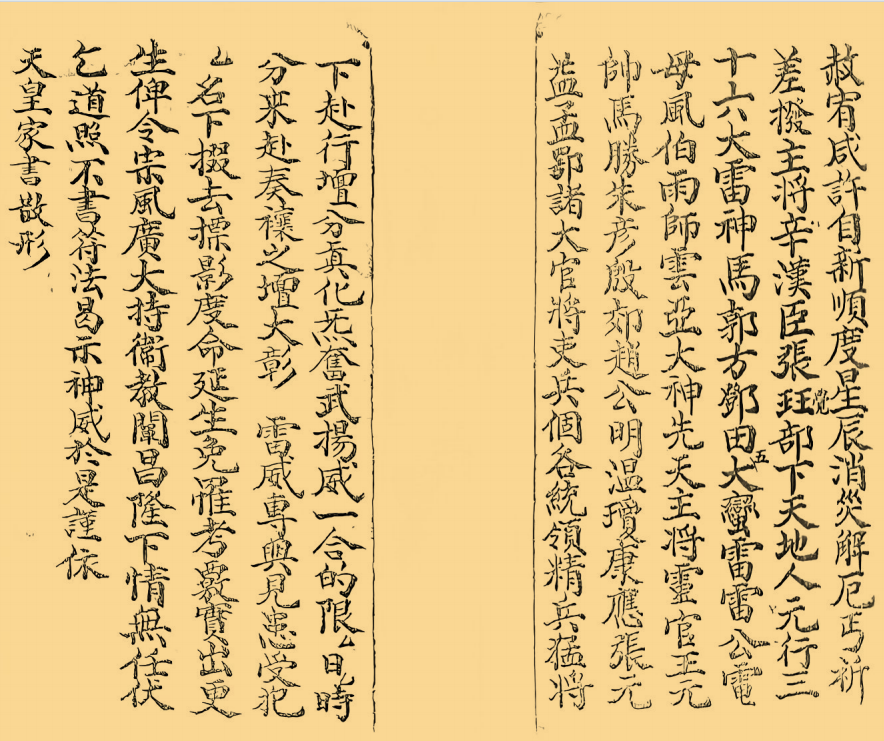 赦宥咸許自新順度星辰消災解厄丐祈
差撥主將辛漢臣張珏党部下天地人元行三
十六大雷神馬郭方鄧田五大蠻雷雷公電
母風伯雨師雲亞大神先天主將靈官王元
帥馬勝朱彦殷郊趙公明温瓊康應張元
孟鄂諸大官將吏兵個各統領精兵猛將
下赴行壇分真化炁奮武揚威一合的限厶日時
分來赴奏禳之壇大彰 雷威專與見患受犯
厶名下掇去摽影度命延生免罹考覈實出更
生俾令宗風廣大持衛教闡昌隆下情無任伏
乞道照不書符法曷示神威於是謹依
天皇家書散形